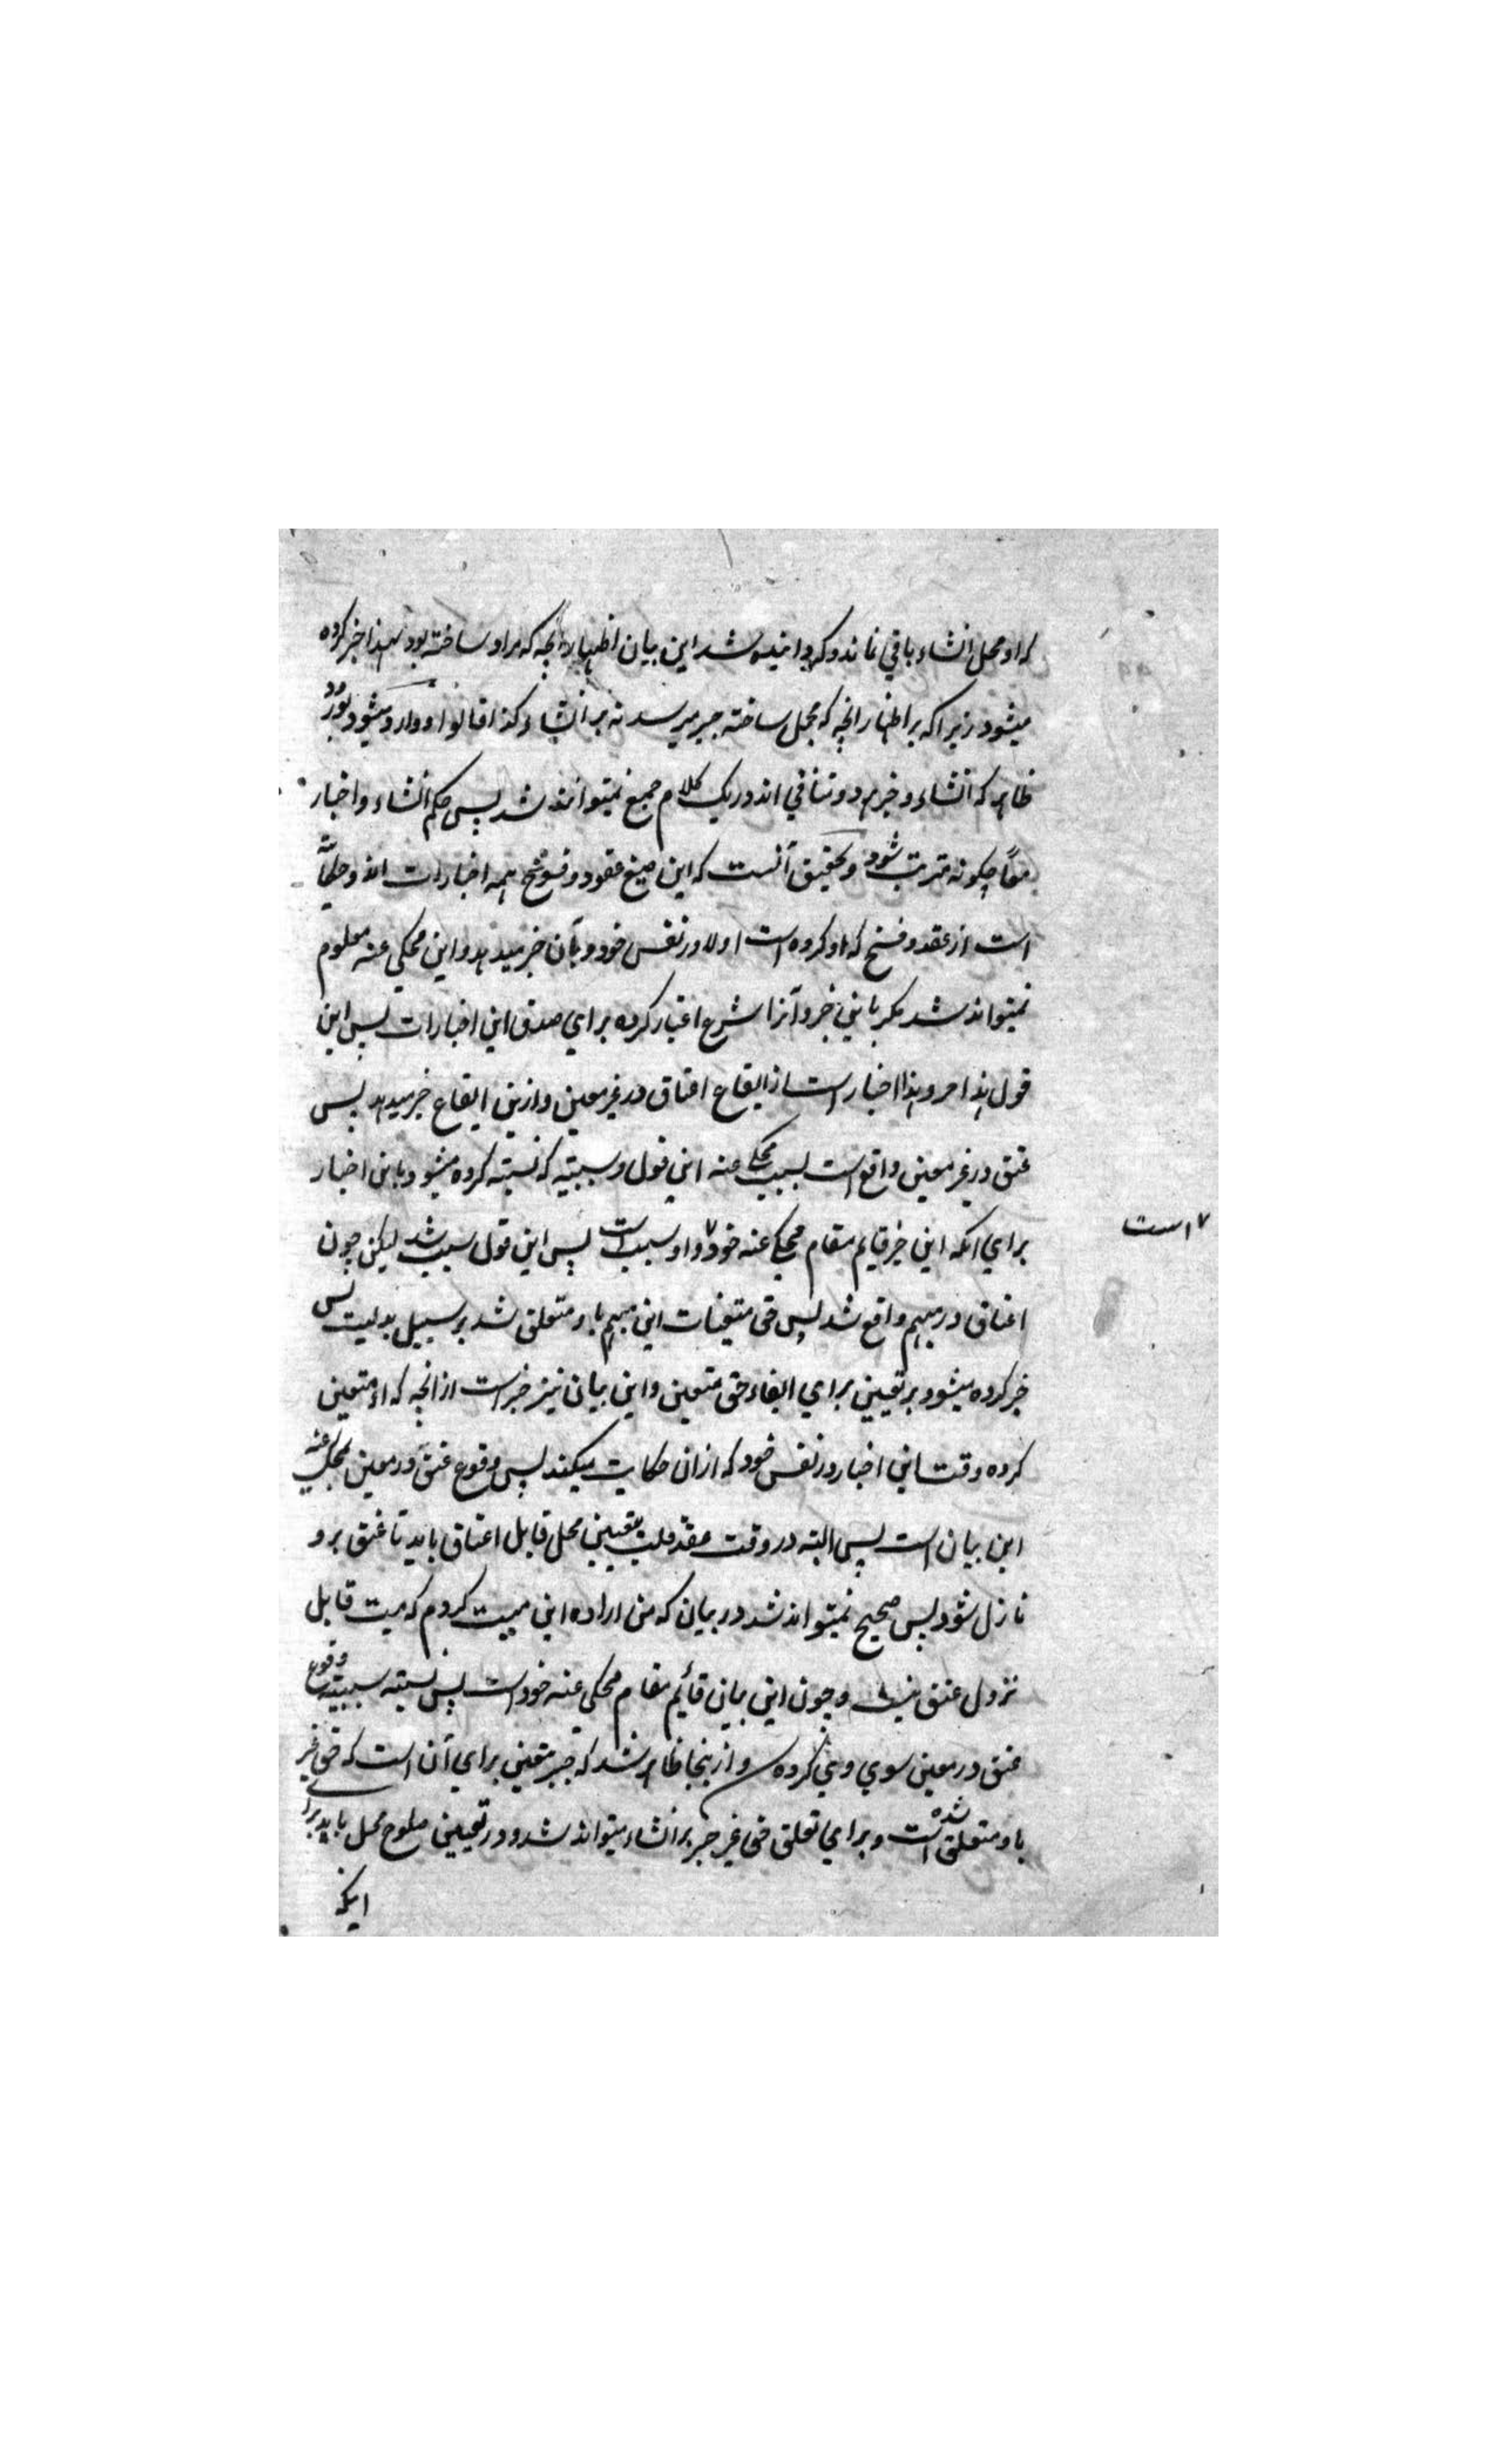 که او محل انشاء باقی نماند و گردانیده شد این بیان اظهار انچه که مراد ساخته بود لهذا خبر کرده
میشود زیرا که بر اظهار انچه که مجمل ساخته جبر میرسد نه بر انشاء کذا قالوا و وارد میشود بورود
ظاهر که انشاء و خبر هر دو تنافی اند در یک کلام جمع نمیتوانند شد پس حکم انشاء و اخبار
معًا چکونه مترتب شود و تحقیق آنست که این صیغ عقود و فسوخ همه اخبارات اند و حکایت
است از عقد و فسخ که او کرده است اولا در نفس خود و بآن خبر میدهد و این محکی عنه معلوم
نمیتواند شد مکر باین خبر و آنرا شرع اعتبار کرده برای صدق این اخبارات پس این
قول هذا حر و هذا اخبار است از ایقاع اعتاق در غیر معین و ازین ایقاع خبر میدهد پس
عتق در غیر معین واقع است بسبب محکی عنه این قول و سببیته که نسبته کرده میشود باین اخبار
برای انکه این خبر قایم مقام محکی عنه خود ۷ و او سبب است پس این قول سبب شد لیکن چون
۷ است
اعتاق در مبهم واقع شد پس حق متعینات این مبهم باو متعلق شد بر سبیل بدلیت پس
خبر کرده میشود بر تعیین برای ایفاء حق متعین و این بیان نیز خبر است از انچه که او متعین
کرده وقت این اخبار در نفس خود که ازان حکایت میکند پس وقوع عتق در معین بمحکی عنه
این بیان است پس البته در وقت عقد قلب بتعیین محل قابل اعتاق باید تا عتق برو
نازل شود پس صحیح نمیتواند شد در بیان که من اراده این میت کردم که میت قابل
نزول عتق نیست و چون این بیان قائم مقام محکی عنه خود است پس نسبته سببیته وقوع
عتق در معین سوی وی کرده و ازینجا ظاهر شد که جبر متعین برای آن است که حق غیر
باو متعلق شده است و برای تعلق حق غیر جبر بر انشاء میتواند شد و در تعیین صلوح محل باید برای
اینکه